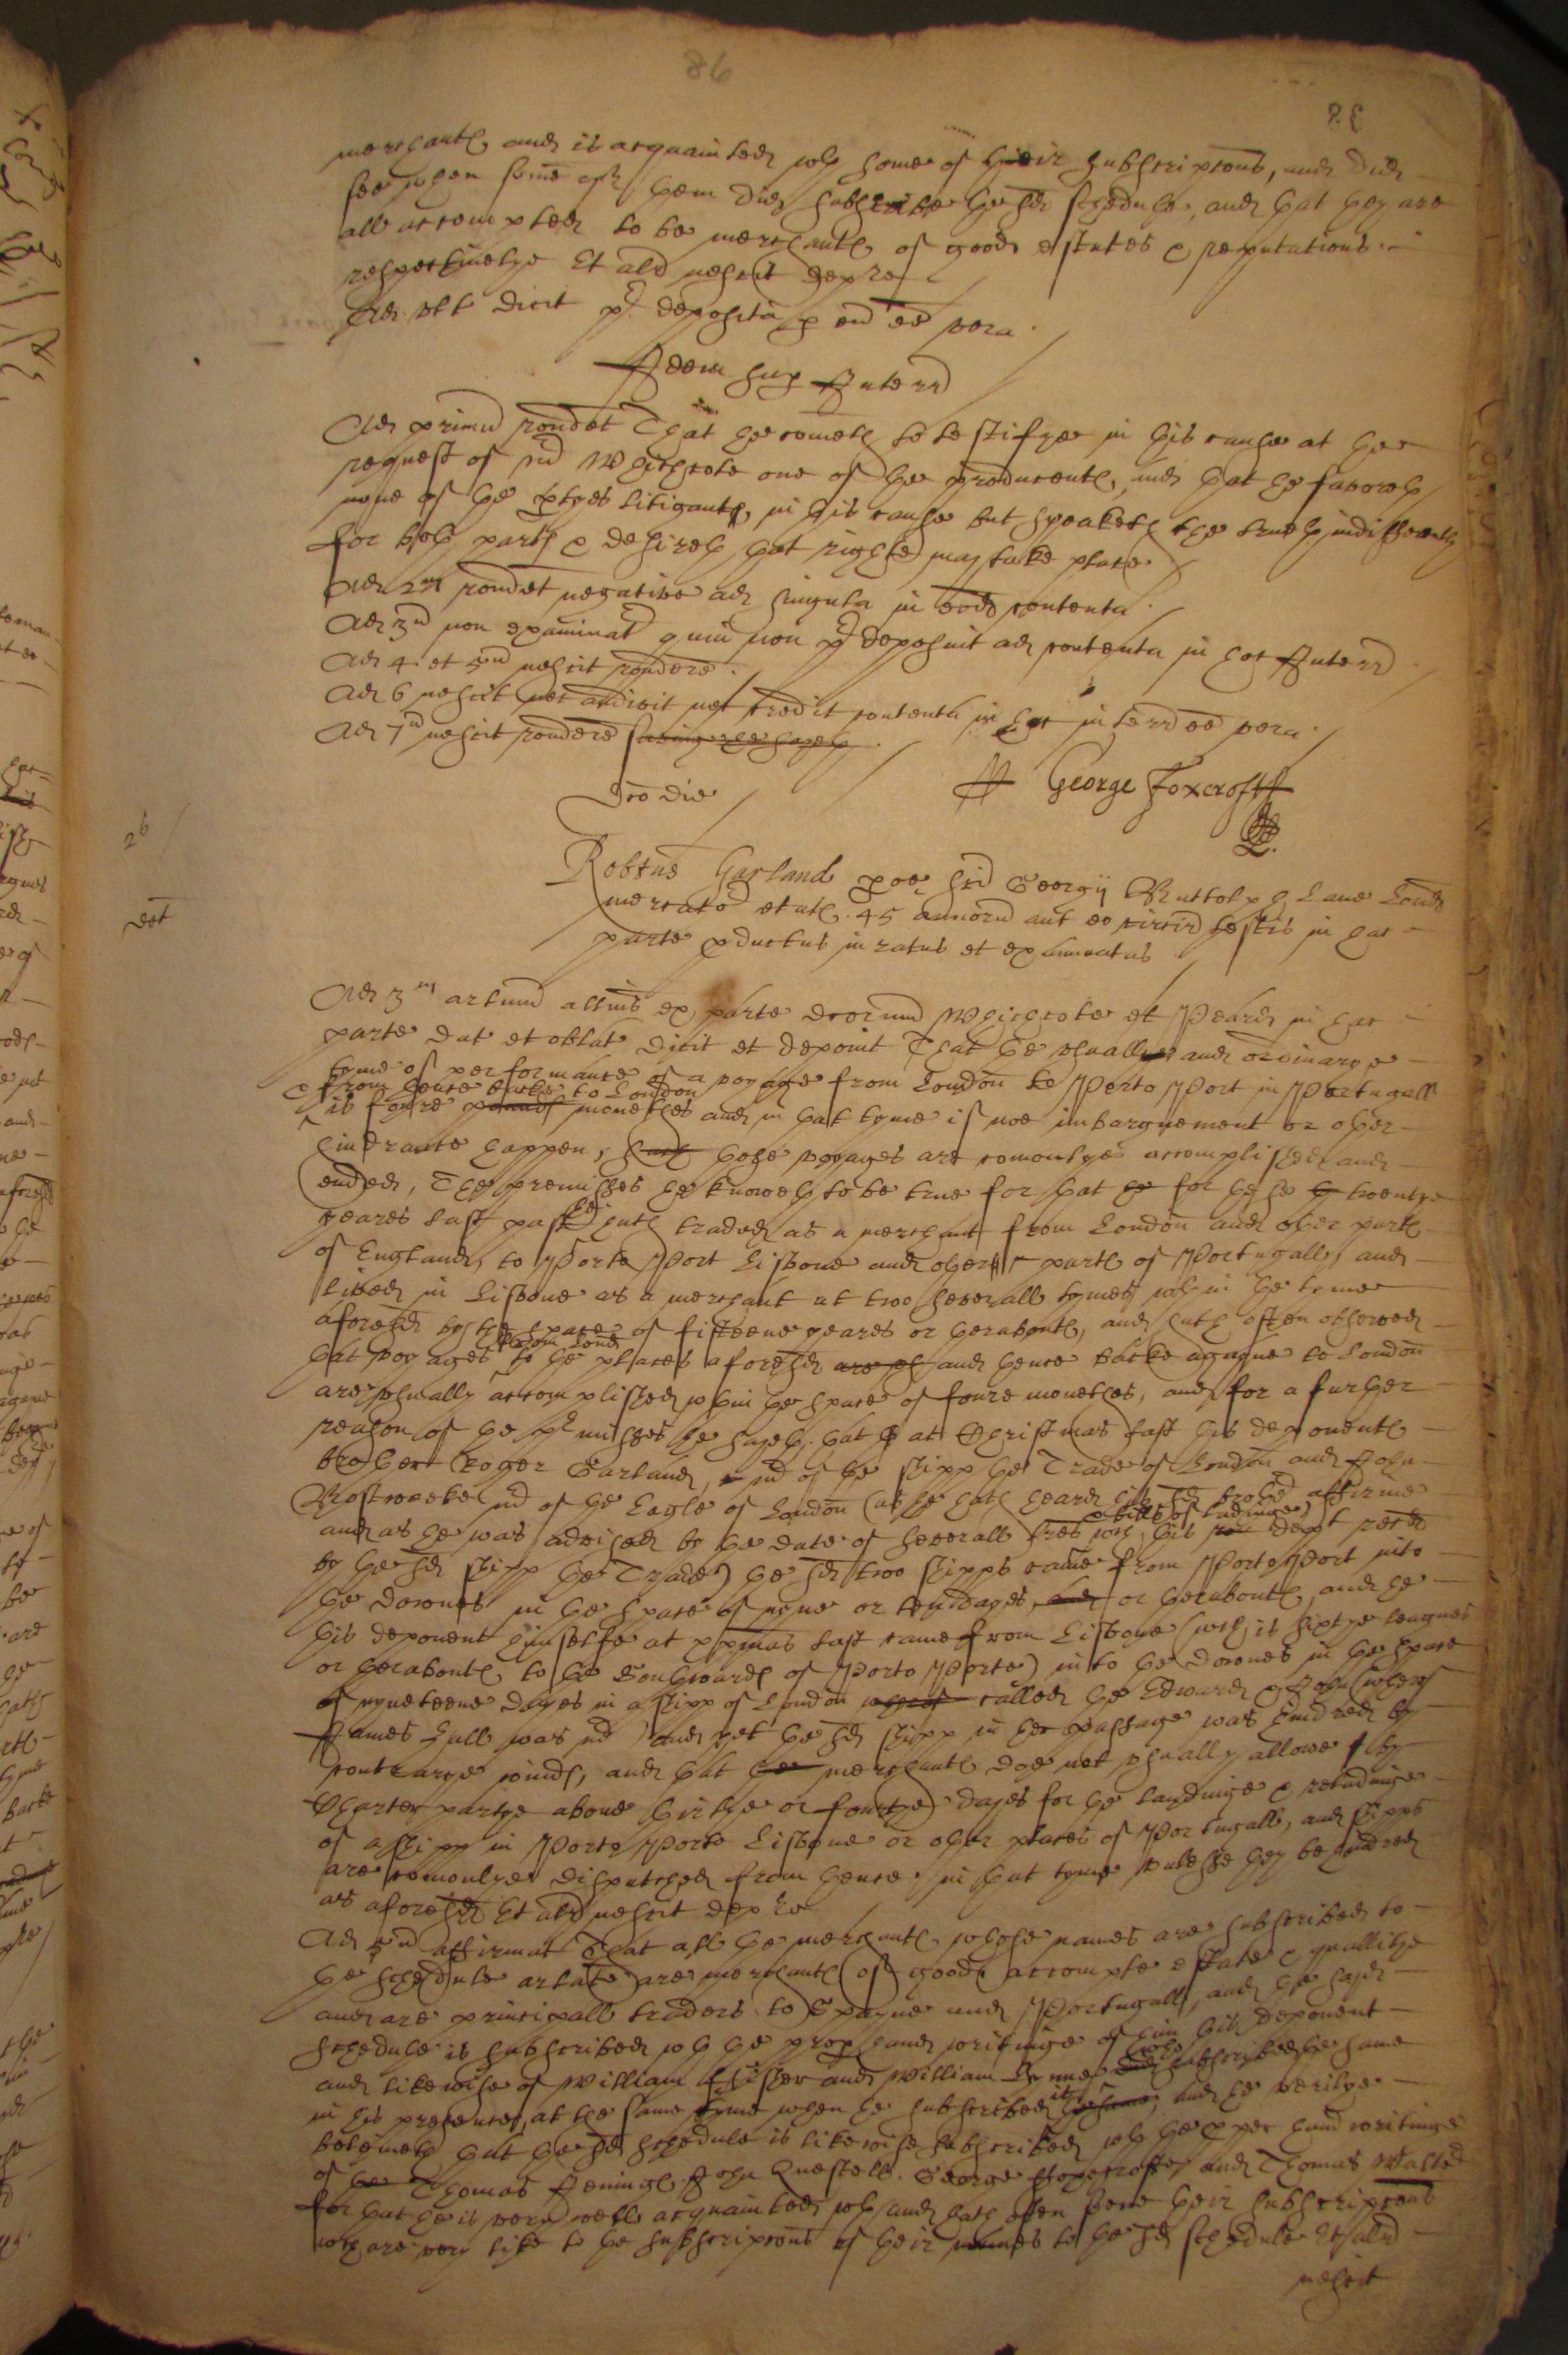 86
merchants and is acquainted wth some of their subscriptions, and did
see when some of them did subscribe the sd schedule, and that they are
all accompted to be merchants of good estates & reputations
respectivelye Et alr nescit depre
Ad ult dicit pr deposita p eu ee vera
Idem sup Interr
Ad primu rondet That he cometh to testifye in this cause at the
request of mr Whichcote one of the producents, and that he favoreth
none of the ptyes litigants, in this cause but speaketh the trueth indifferently
for both parts & desireth that right may take place
Ad 2m rondet negative ad singula in eode contenta
Ad 3m non examinat quia non pr deposuit ad contenta in hoc Interr
Ad 4 et 5m nescit rondere
Ad 6 nescit nec credit contenta in hoc interr ee vera
Ad 7m nescit rondere saving he sayeth
George Foxcrofft
Eo die
26
Robtus Garland poe sci Georgii Buttolph Lane Lond
mercator etats 45 annoru aut eo circit testis in hac
parte pductus juratus et examinatus
Ad 3m artlum allnis ex parte dcorum Whichcote et Peard in hac
parte dat et oblat dicit et deponit That the usuall and ordinarye
tyme of performance of a voyage from London to Porto Port in Portugall
& from thence backe to London
is foure monethes and in that tyme if noe imbarquement or other
hindrance happen, those voyages are comonlye accomplished and
ended, The premisses he knoweth to be true for that he for theise twentye
yeares last past hath traded as a merchant from London and other parts
of England, to Porto Port Lisbone and other parts of Portugall, and
lived in Lisbone as a merchant at two severall tymes wthin the tyme
aforesd by the space of fifteene yeares or therabouts, and hath often observed
that voyages from Lond to the places aforesd and thence backe agayne to London
are usually accomplished wthin the space of foure monethes, and for a further
reason of the prmisses he sayeth that at Christmas last this deponents
brother Roger Garland, mr of the shipp the Trade of London and John
Bostweeke mr of the Eagle of London (as he hath heard his sd brother affirme
and as he was advised by the date of severall lres & bills of ladinge wch this dept recd
by the sd shipp the Trade) the sd two shipps came from Porto Port into
the Downes in the space of nyne or tenn dayes, or therabouts and he
this deponent himselfe at xpmas last came from Lisbone (wch is sixtye leagues
or therabouts to the Southwards of Porto Porte) into the Downes in the space
of nyneteene dayes in a shipp of London called the Edward & John (wherof
James Hull was mr) and yet the sd shipp in her passage was hindred by
contrarye winds, and that merchants doe not usually allowe by
Charter partye above thirtye or fourtye dayes for the ladinge & reladinge
of a shipp in Porto Porto Lisbone or other places of Portugall, and shipps
are comonlye dispatched from thence in that tyme unlesse they be hindred
as aforesd Et alr nescit depre
Ad 5m affirmat That all the merchants whose names are subscribed to
the schedule arlate are merchants of good accompte estate & quallitye
and are principall traders to Spayne and Portugall, and the sayd
schedule is subscribed wth the prop hand writinge of him this deponent
and likewise of William Fisher and William who subscribed the same
in his presence, at the same tyme when he subscribed it, and he verilye
beleiveth that the sd schedule is likewise subscribed wth the pper hand writinge
of Thomas Jenings John Questell George Foxcrofte and Thomas Walter
for that he is very well acquainted wth and hath often seene their subscriptions
wch are very like to the subscriptions of their names to the sd schedule Et alr
nescit